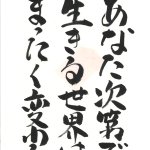 あなた次第で
生きる世界は
まったく変わ